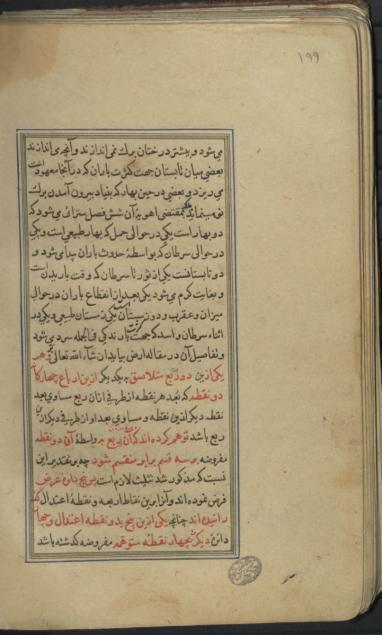 ۱۹۹
می شود و بیشتر درختان برك نمی اندازند و آنچه می اندازند
بعضی میان تابستان جهت کثرت باران که در آنجا معهود است
می ریزد و بعضی در حین بهار که بنیاد بیرون آمدن برك
نو مقتضی اهویهٔ آن شش فصل می شود که
دو بهار است یکی در حوالی حمل که بهار طبیعی است و یکی
در حوالی سرطان که بواسطهٔ حدوث باران پیدا می شود و
دو تابستانست یکی از ثور تا سرطان که وقت باریدن است
و بغایت کرم می شود یکی بعد از انقطاع باران در حوالی
میزان و عقرب و دو زمستان است یکی زمستان طبیعی و یکی در
اثناء سرطان و اسد که جهت بارندکی فی الجمله سرد می شود
و تفاصیل آن در مقاله ارض بیاید ان شآء الله تعالی و هر
یکی از این دو ربع متلاصق بیکدیکر از این ارباع چهارکانه
دو نقطه که بعد هر نقطه از طرفی از ان ربع مساوی بعد
نقطه دیکر از این نقطه و مساوی بعد او از طرف دیکر از ان
ربع باشد توهم کرده اند که آن ربع بواسطهٔ آن دو نقطه
مفروضه بسه قسم برابر منقسم شود چه بر تقدیر این
نسبت که مذکور شد تثلیث لازم است و پنج دایرهٔ عرض
فرض نموده اند و آنرا برین نقاط اربعه و نقطهٔ اعتدال
رانیده اند چنانچه یکی از این پنج بدو نقطه اعتدال و چهار
دایرهٔ دیکر بچهار نقطه متوهمه مفروضه کذشته باشد